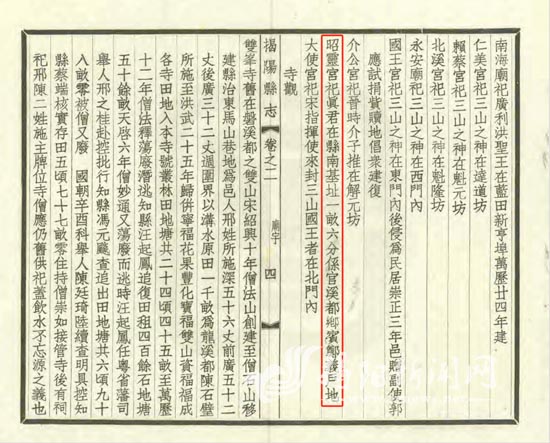 南海廟祀廣利洪聖王在藍田新亨埠萬曆廿四年建
仁美宮祀三山之神在達道坊
賴蔡宮祀三山之神在魁元坊
北溪宮祀三山之神在魁隆坊
永安廟祀三山之神在西門內
國王宮祀三山之神在東門內後侵為民居崇正三年邑贈副使郭
應試捐貲贖地倡衆建復
介公宮祀晉時介子推在解元坊
昭靈宮祀眞君在縣南基址一畝六分係官溪都鄉賓鄭
大使宮祀宋指揮使來封三山國王者在北門內
寺觀
揭陽縣志
卷之二
廟宇
四
雙峯寺舊在磐溪都之雙山宋紹興十年僧法山創建至僧
建縣治東馬山巷地為邑人邢姓所施深五十六丈前廣五十二
丈後廣三十二丈週圍界以溝水原田一千畝為龍溪都陳石壁
所施至洪武二十五年歸併寧福花果豐化寶福雙山資福福成
各寺田地入本寺號叢林田地塘共二十四頃四十五畝至萬曆
十二年僧法釋蕩廢潛逃知縣汪起鳳追復田租四百餘石地塘
五十餘畝天啓六年僧妙通又蕩廢而逃時汪起鳳任粤省藩司
舉人邢之桂赴控批行知縣馮元颷查追出田地塘共六頃九十
入畝零被僧又廢 國朝辛酉科舉人陳廷琦陸續查明具控知
縣蔡端核實存田五頃七十七畝零住持僧崇如接管寺後有祠
祀邢陳二姓施主牌位寺僧應仍舊供祀蓋飲水不忘源之義也